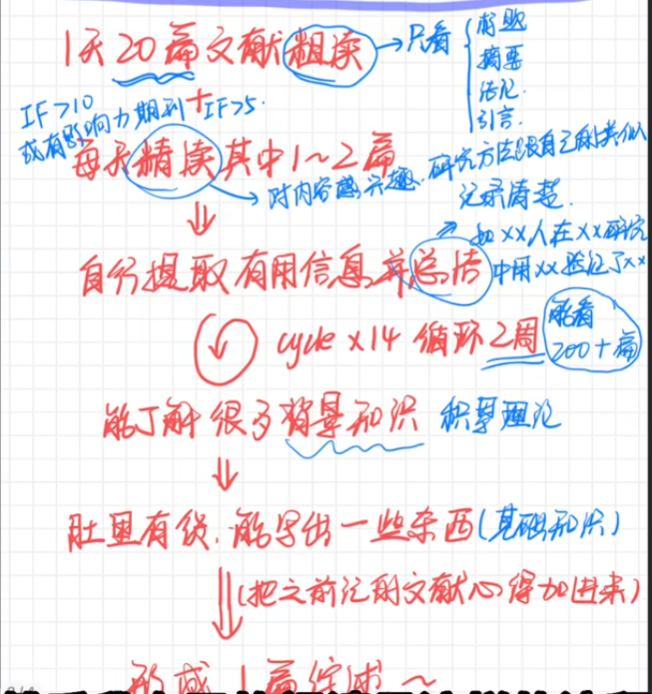 1天20篇文献粗读 → 只看 { 标题
摘要
结论.
引言.
IF>10 + IF>5.
或有影响力期刊
每天精读其中1~2篇
→ 对内容感兴趣. 研究方法跟自己的类似
记录清楚.
⇓
自行提取有用信息并总结
↗ 如××人在××研究
中用××验证了××
↓ cycle ×14 循环2周
能看
200+篇
能了解很多背景知识 积累理论
⇓
肚里有货. 能写出一些东西(基础知识)
⇓ (把之前记的文献心得加进来)
形成1篇综述~